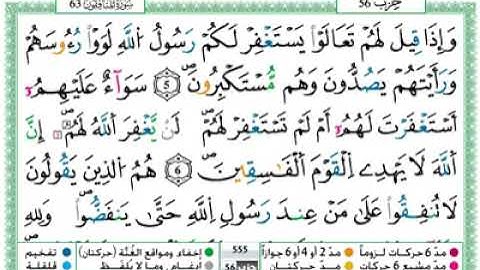 سُورَةُ المُنَافِقُونَ 63 حِزْب 56
وَإِذَا قِيلَ لَهُمْ تَعَالَوْا يَسْتَغْفِرْ لَكُمْ رَسُولُ اللَّهِ لَوَوْا رُءُوسَهُمْ
وَرَأَيْتَهُمْ يَصُدُّونَ وَهُم مُّسْتَكْبِرُونَ 5 سَوَآءٌ عَلَيْهِمُۥ
أَسْتَغْفَرْتَ لَهُمُۥ أَمْ لَمْ تَسْتَغْفِرْ لَهُمْ لَنْ يَّغْفِرَ اللَّهُ لَهُمُۥ إِنَّ
اللَّهَ لَا يَهْدِي الْقَوْمَ الْفَاسِقِينَ 6 هُمُ الَّذِينَ يَقُولُونَ
لَا تُنفِقُوا عَلَىٰ مَنْ عِندَ رَسُولِ اللَّهِ حَتَّىٰ يَنفَضُّوا وَلِلهِ
مدّ 6 حركات لزوماً مدّ 2 أو 4 أو 6 جوازاً 555 إخفاء ومواقع الغُنَّة (حركتان) تفخيم
مدّ مشبع 6 حركات مدّ حركتان 56 إدغام ، وما لا يُلفَظ قلقلة